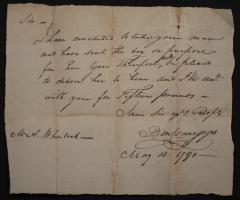 Sir —
I have concluded to take your man
and have sent the boy on purpose
for him you'll therefore be pleased
to deliver her to him and I'll
with you for fifteen pounds —
I am Sir yr
Mr A. Wheelock — Ben
May 10 - 1790 —